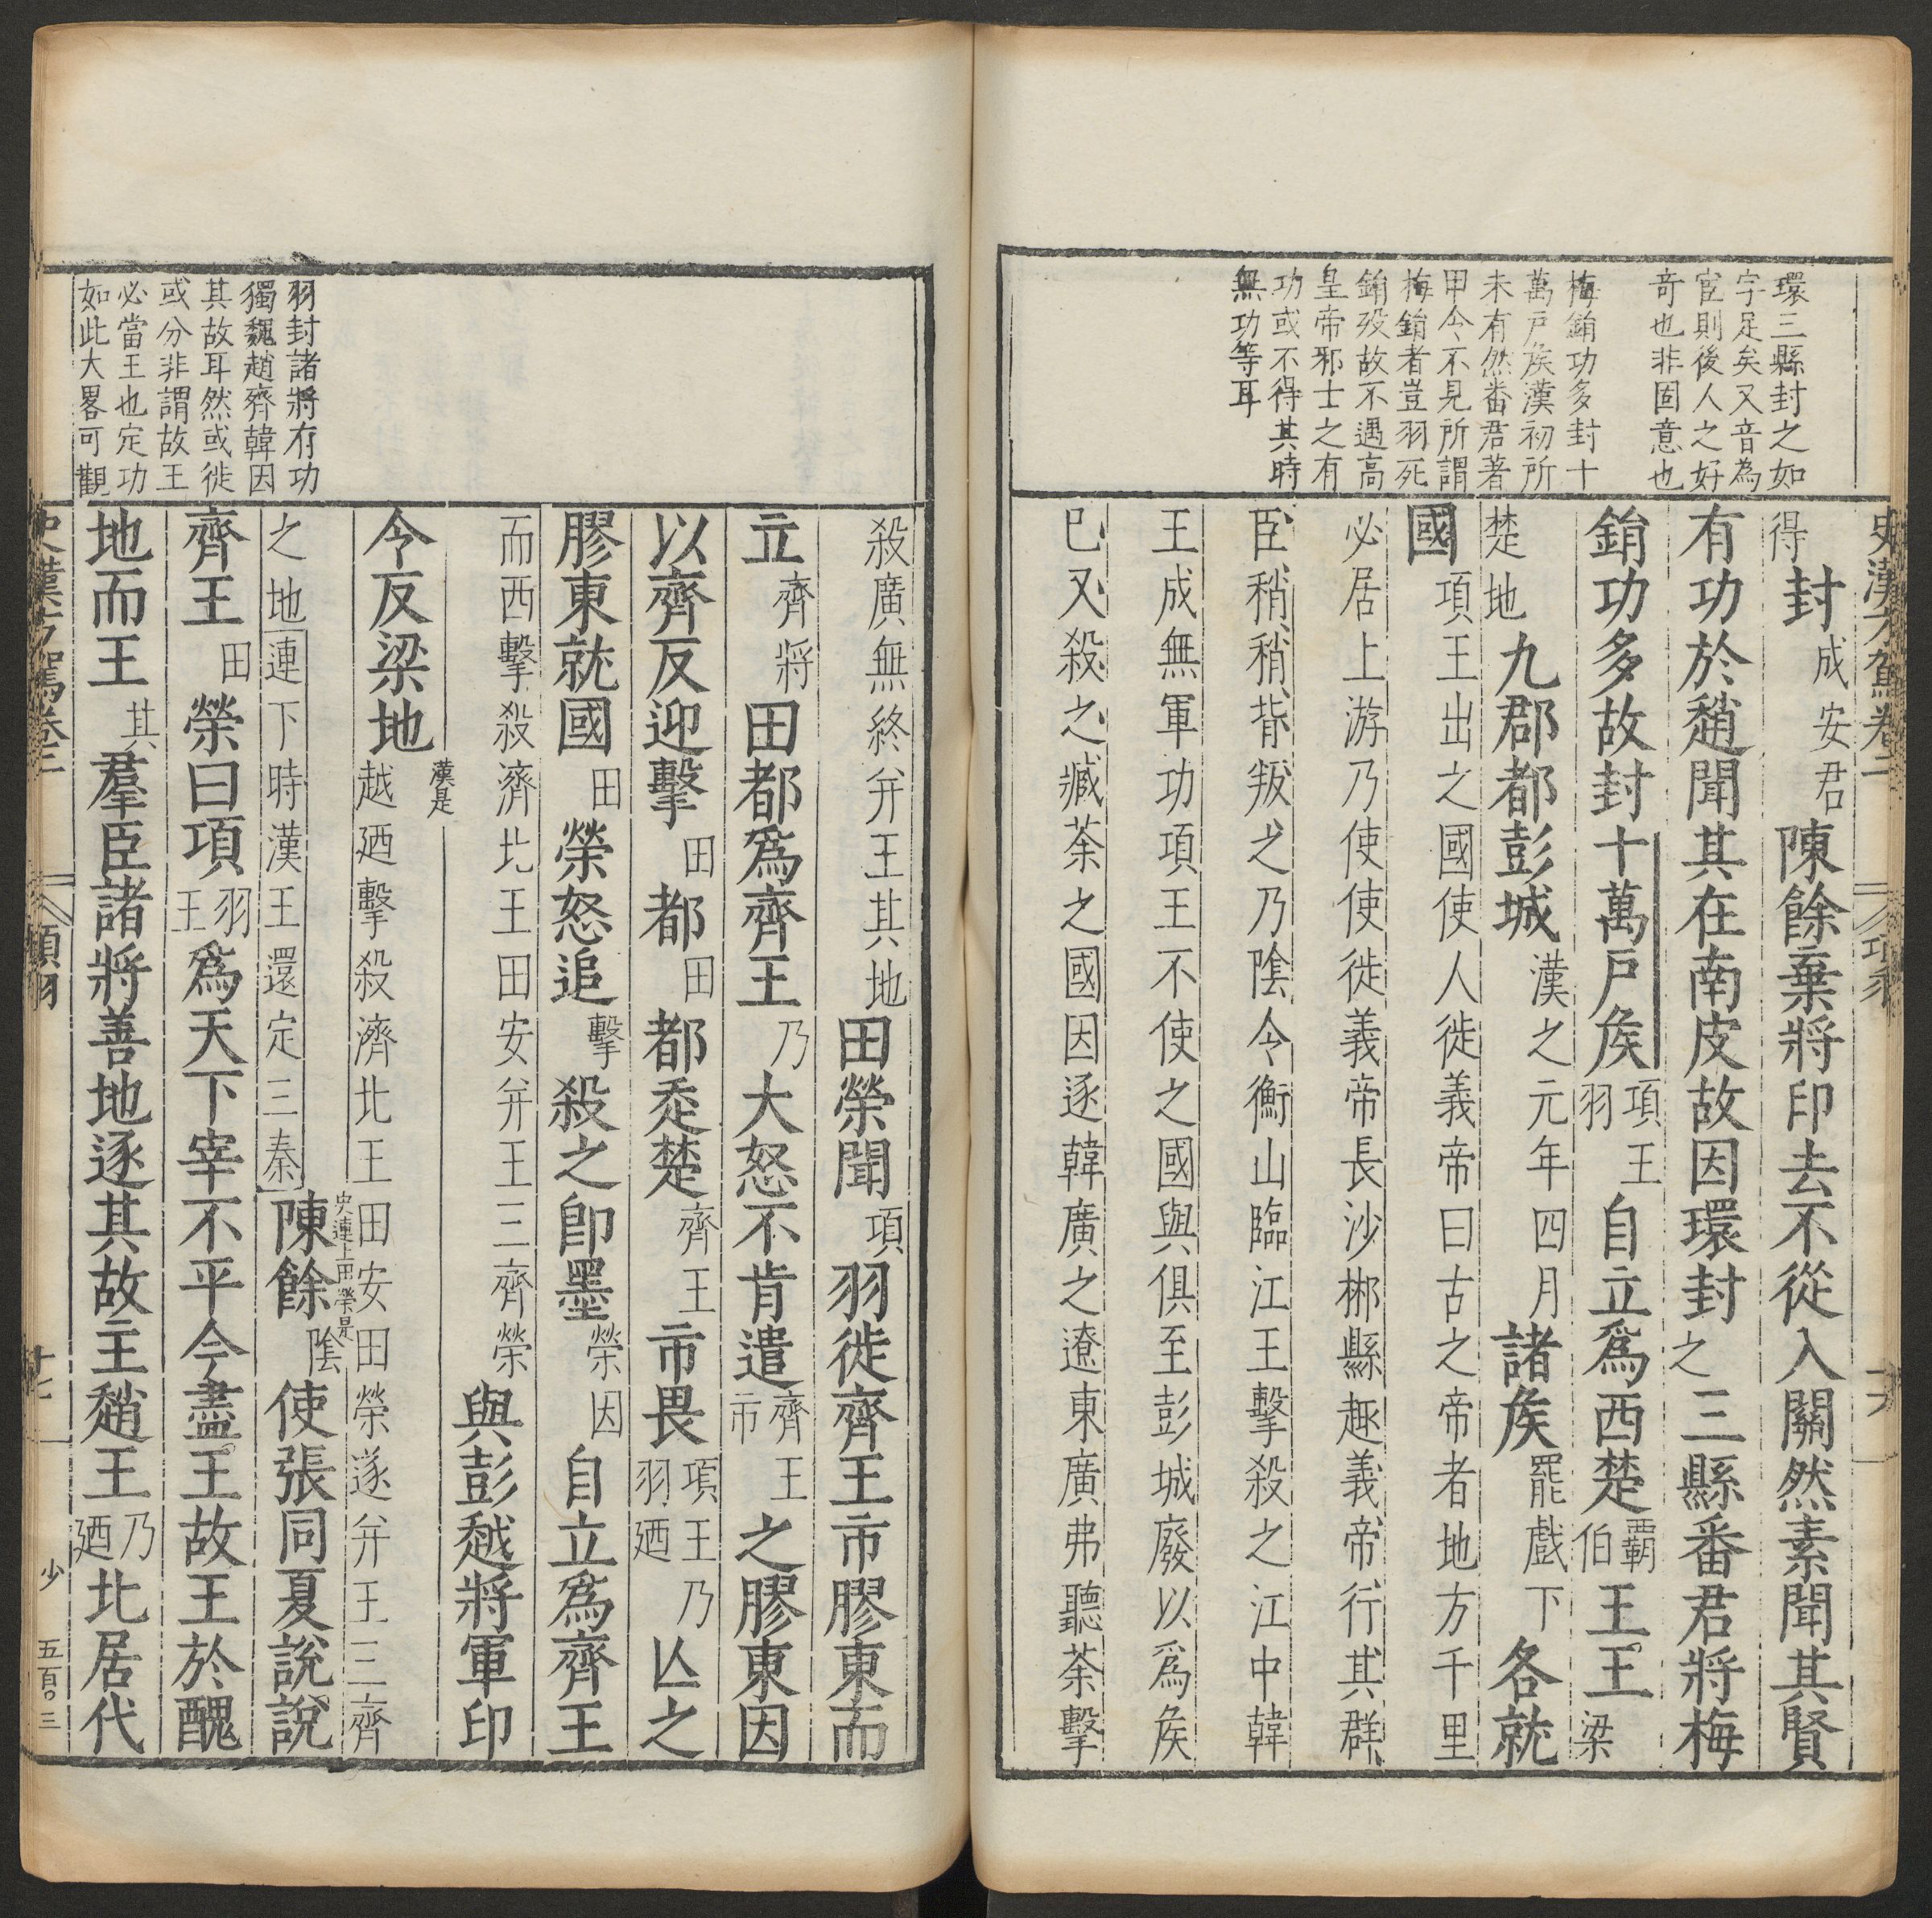 史漢方駕卷二
項羽
十六
環三縣封之如
字足矣又音為
宦則後人之好
奇也非固意也
梅鋗功多封十
萬戸矦漢初所
未有然番君著
甲令不見所謂
梅鋗者豈羽死
鋗歿故不遇高
皇帝邪士之有
功或不得其時
無功等耳
得封成安君陳餘棄將印去不從入關然素聞其賢
有功於趙聞其在南皮故因環封之三縣番君將梅
鋗功多故封十萬戸矦項王羽自立爲西楚霸伯王王梁
楚地九郡都彭城漢之元年四月諸矦罷戲下各就
國項王出之國使人徙義帝曰古之帝者地方千里
必居上游乃使使徙義帝長沙郴縣趣義帝行其群
臣稍稍背叛之乃隂令衡山臨江王擊殺之江中韓
王成無軍功項王不使之國與俱至彭城廢以爲矦
已又殺之臧荼之國因逐韓廣之遼東廣弗聽荼擊
殺廣無終并王其地田榮聞項羽徙齊王市膠東而
立齊將田都爲齊王乃大怒不肯遣齊王市之膠東因
以齊反迎擊田都田都走楚齊王市畏項王羽乃廼亾之
膠東就國田榮怒追擊殺之卽墨榮因自立爲齊王
而西擊殺濟北王田安并王三齊榮與彭越將軍印
令反梁地漢是越廼擊殺濟北王田安田榮遂并王三齊
之地連下時漢王還定三秦史連上田榮是陳餘隂使張同夏說說
齊王田榮曰項羽王爲天下宰不平今盡王故王於醜
地而王其羣臣諸將善地逐其故主趙王乃廼北居代
羽封諸將有功
獨魏趙齊韓因
其故耳然或徙
或分非謂故王
必當王也定功
如此大畧可觀
史漢方駕卷二
項羽
十七
少
五百〇三